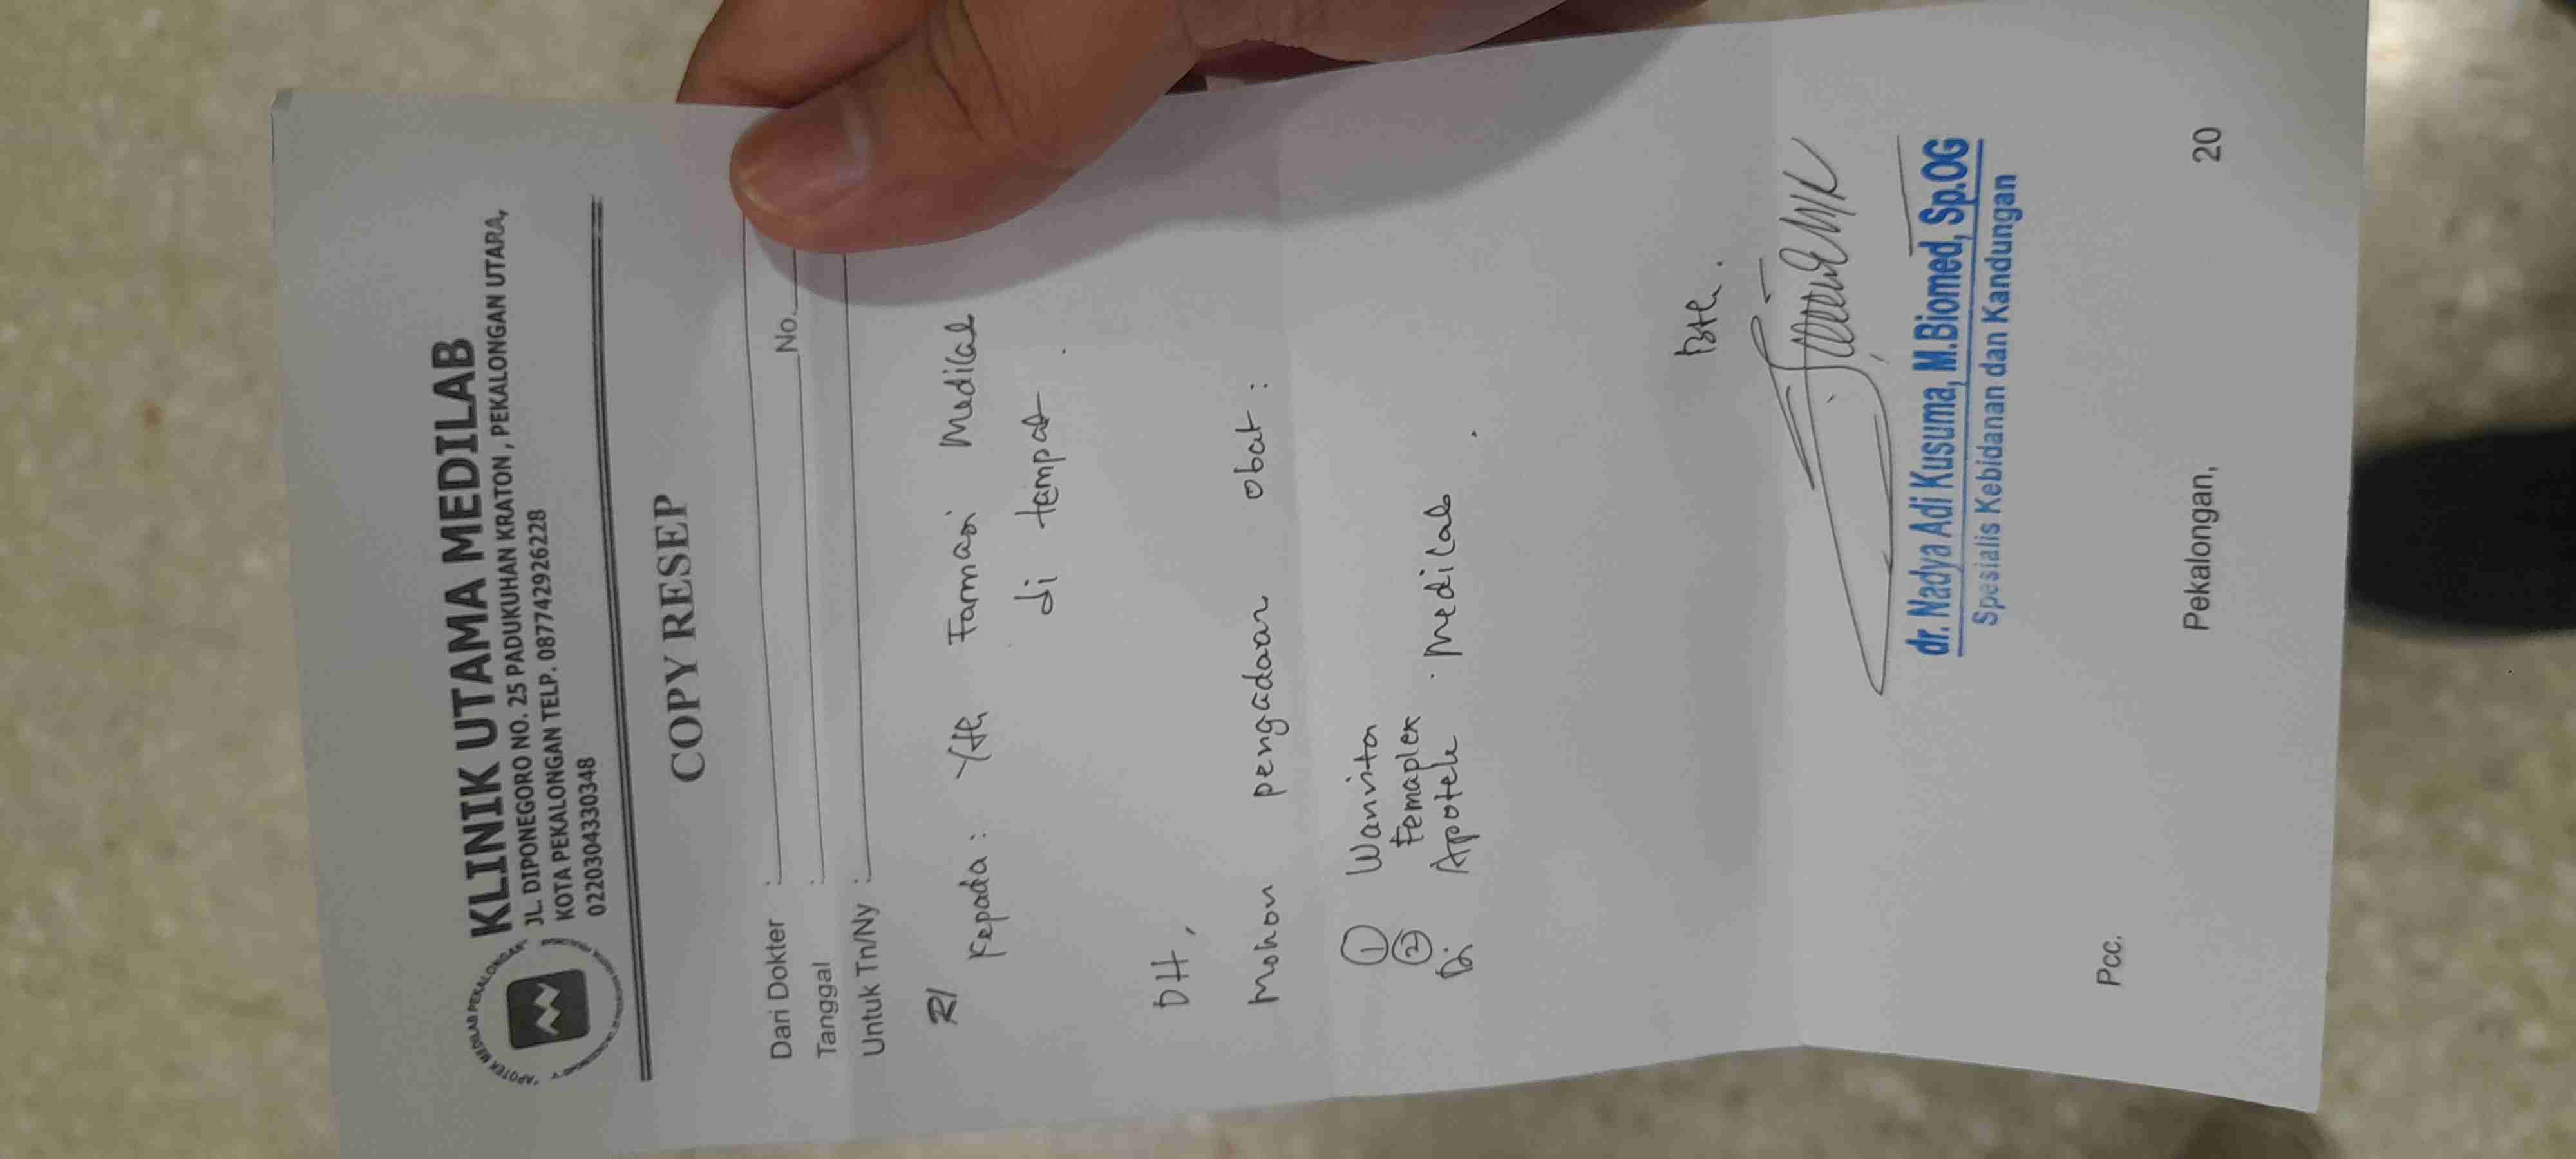 APOTEK MEDILAB PEKALONGAN
KLINIK UTAMA MEDILAB
JL. DIPONEGORO NO. 25 PADUKUHAN KRATON , PEKALONGAN UTARA,
KOTA PEKALONGAN TELP. 087742926228
0220304330348
COPY RESEP
Dari Dokter :
Tanggal : No.
Untuk Tn/Ny :
R/ Kepada : Yth Farmasi Medilab
di tempat .
DH,
Mohon pengadaan obat :
① Wanvita
② Femaplex
Di Apotek Medilab .
Btk.
dr. Nadya Adi Kusuma, M.Biomed, Sp.OG
Spesialis Kebidanan dan Kandungan
Pcc.
Pekalongan, 20